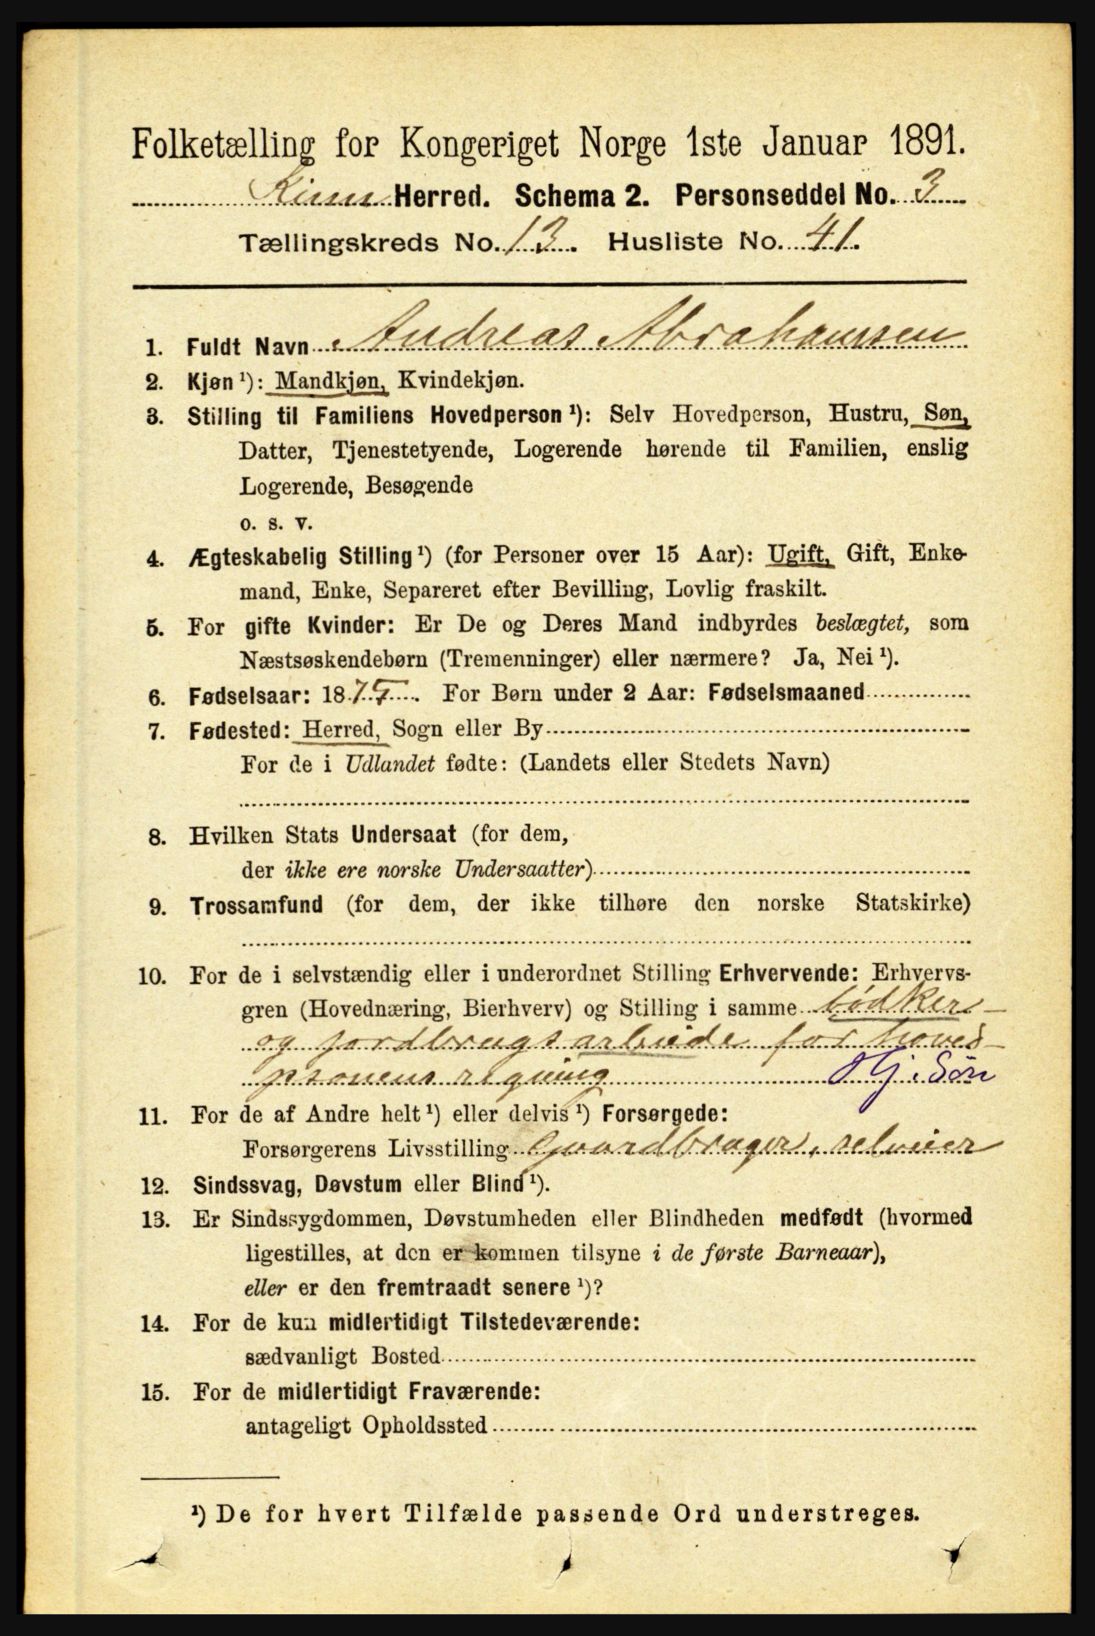 Folketælling for Kongeriget Norge 1ste Januar 1891.
Kinn Herred. Schema 2. Personseddel No. 3
Tællingskreds No. 13. Husliste No. 41.
1. Fuldt Navn Andreas Abrahamssen
2. Kjøn ¹): Mandkjøn, Kvindekjøn.
3. Stilling til Familiens Hovedperson ¹): Selv Hovedperson, Hustru, Søn,
Datter, Tjenestetyende, Logerende hørende til Familien, enslig
Logerende, Besøgende
o. s. v.
4. Ægteskabelig Stilling ¹) (for Personer over 15 Aar): Ugift, Gift, Enke-
mand, Enke, Separeret efter Bevilling, Lovlig fraskilt.
5. For gifte Kvinder: Er De og Deres Mand indbyrdes beslægtet, som
Næstsøskendebørn (Tremenninger) eller nærmere? Ja, Nei ¹).
6. Fødselsaar: 1875. For Børn under 2 Aar: Fødselsmaaned
7. Fødested: Herred, Sogn eller By
For de i Udlandet fødte: (Landets eller Stedets Navn)
8. Hvilken Stats Undersaat (for dem,
der ikke ere norske Undersaatter)
9. Trossamfund (for dem, der ikke tilhøre den norske Statskirke)
10. For de i selvstændig eller i underordnet Stilling Erhvervende: Erhvervs-
gren (Hovednæring, Bierhverv) og Stilling i samme bødker-
og jordbrugsarbeide for hoved-
psonens regning Hj. Søn
11. For de af Andre helt ¹) eller delvis ¹) Forsørgede:
Forsørgerens Livsstilling Gaardbruger, selveier
12. Sindssvag, Døvstum eller Blind ¹).
13. Er Sindssygdommen, Døvstumheden eller Blindheden medfødt (hvormed
ligestilles, at den er kommen tilsyne i de første Barneaar),
eller er den fremtraadt senere ¹)?
14. For de kun midlertidigt Tilstedeværende:
sædvanligt Bosted
15. For de midlertidigt Fraværende:
antageligt Opholdssted
¹) De for hvert Tilfælde passende Ord understreges.